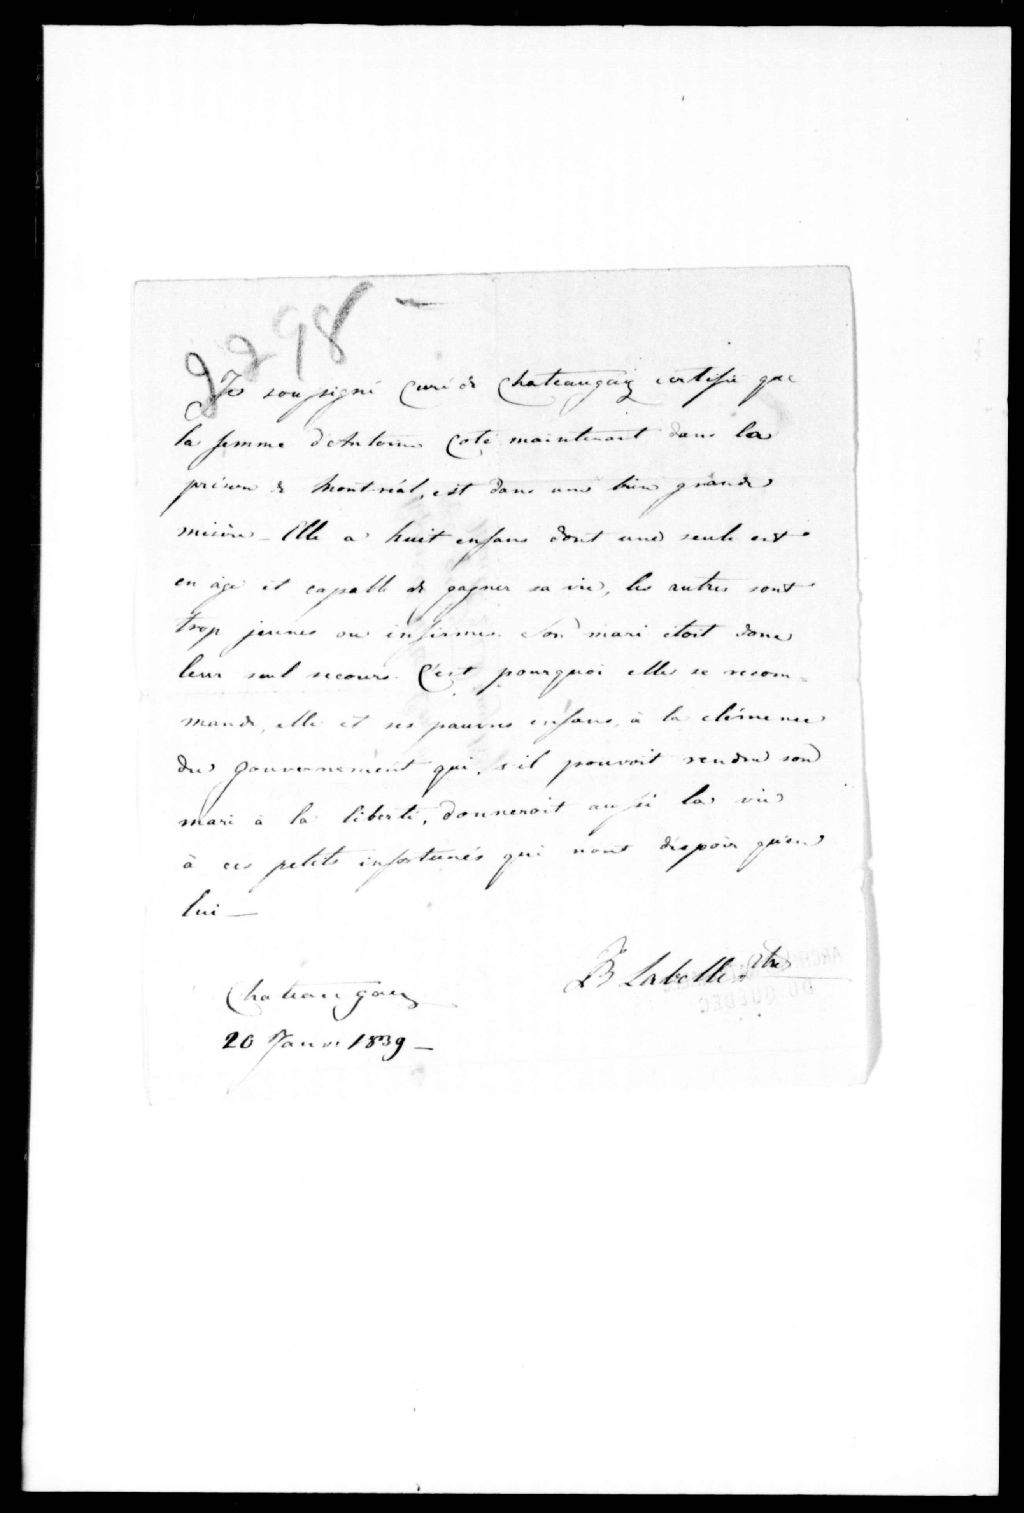 2298
Je soussigné Curé de Chateaugay certifie que
la femme d'Antoine Coté maintenant dans la
prison de Montréal, est dans une bien grande
misère - Elle a huit enfans dont une seule est
en âge et capable de gagner sa vie, les autres sont
trop jeunes ou infirmes. Son mari étoit donc
leur seul secours. C'est pourquoi elle se recom-
mande, elle et ses pauvres enfans, à la clémence
du gouvernement qui, s'il pouvoit rendre son
mari à la liberté, donneroit aussi la vie
à ces petits infortunés qui n'ont d'espoir qu'en
lui —
JB Labelle Ptre
Chateaugay
20 Janvr 1839 —
DU QUEBEC